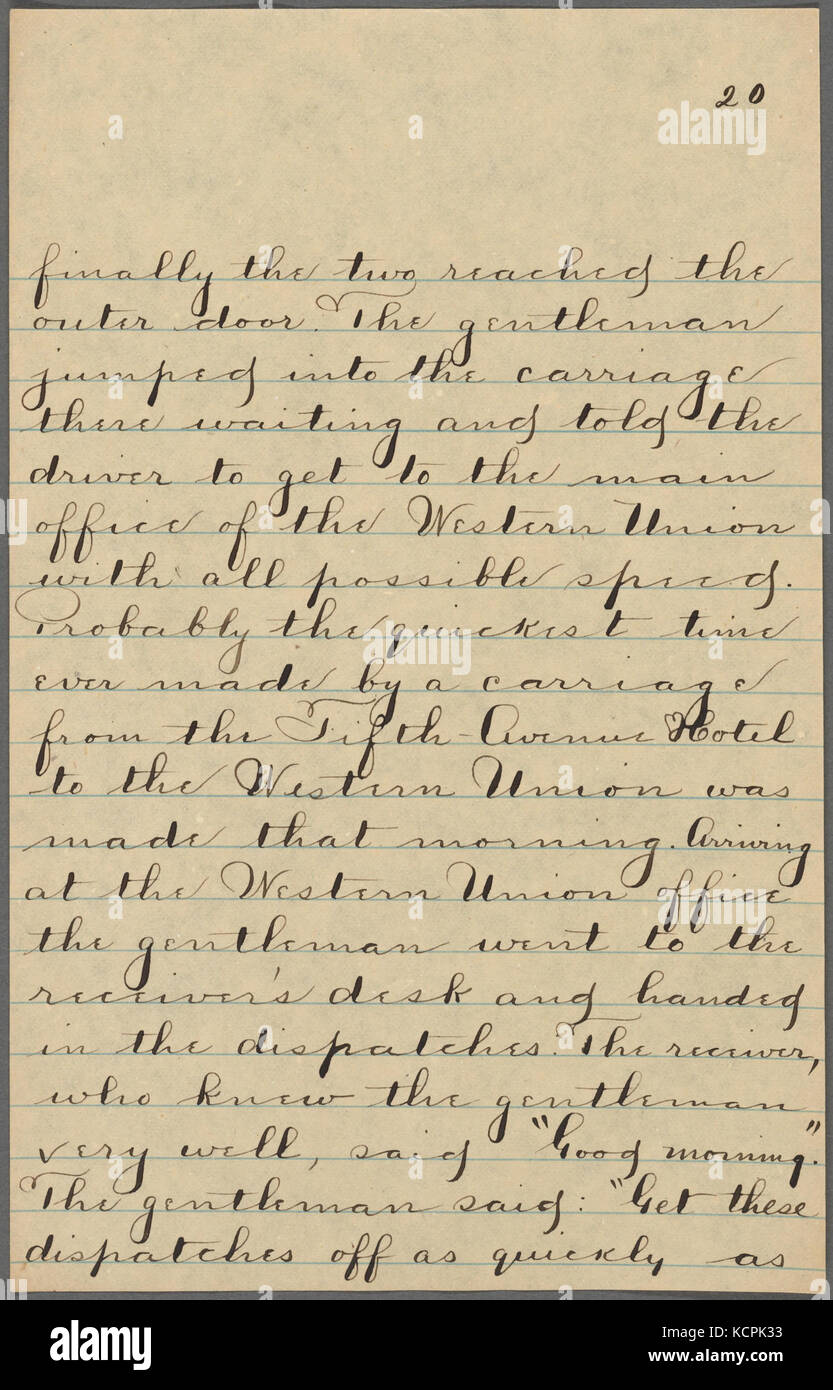 20
finally the two reached the
outer door. The gentleman
jumped into the carriage
there waiting and told the
driver to get to the main
office of the Western Union
with all possible speed.
Probably the quickest time
ever made by a carriage
from the Fifth-Avenue Hotel
to the Western Union was
made that morning. Arriving
at the Western Union office
the gentleman went to the
receiver's desk and handed
in the dispatches. The receiver,
who knew the gentleman
very well, said "Good morning."
The gentleman said: "Get these
dispatches off as quickly as
alamy
Image ID: KCPK33
www.alamy.com